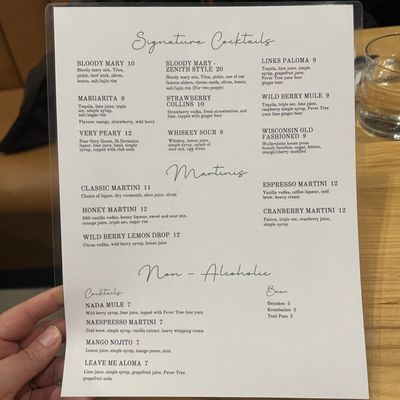 Signature Cocktails
BLOODY MARY 10
Bloody mary mix, Titos,
pickle, beef stick, olives,
lemon, salt/tajin rim
MARGARITA 9
Tequila, lime juice, triple
sec, simple syrup,
salt/sugar rim
Flavors: mango, strawberry, wild berry
VERY PEARY 12
Pear Grey Goose, St.Germaine
liqueur, lime juice, basil, simple
syrup, topped with club soda
BLOODY MARY -
ZENITH STYLE 20
Bloody mary mix, Titos, pickle, ein of our
famous sliders, cheese curds, olives, lemon,
salt/tajin rim (For two people)
STRAWBERRY
COLLINS 10
Strawberry vodka, fresh strawberries, and
lime, topped with ginger beer
WHISKEY SOUR 9
Whiskey, lemon juice,
simple syrup, splash of
sour mix, egg white
LINKS PALOMA 9
Tequila, lime juice, simple
syrup, grapefruit juice,
Fever Tree yuzu lime
ginger beer
WILD BERRY MULE 9
Tequila, triple sec, lime juice,
raspberry simple syrup, Fever
Tree yuzu lime ginger beer
WISCONSIN OLD
FASHIONED 9
Wollersheim house press
brandy/bourbon, sugar, bitters,
orange/cherry muddled
Martinis
CLASSIC MARTINI 11
Choice of liquor, dry vermouth, olive juice, olives
HONEY MARTINI 12
DBD vanilla vodka, honey liqueur, sweet and sour mix,
orange juice, triple sec, sugar rim
WILD BERRY LEMON DROP 12
Citrus vodka, wild berry syrup, lemon juice
ESPRESSO MARTINI 12
Vanilla vodka, coffee liqueur, cold
brew, heavy cream
CRANBERRY MARTINI 12
Patron, triple sec, cranberry juice,
simple syrup
Non - Alcoholic
Cocktails
NADA MULE 7
Wild berry syrup, lime juice, topped with Fever Tree lime yuzu
NAESPRESSO MARTINI 7
Cold brew, simple syrup, vanilla extract, heavy whipping cream
MANGO NOJITO 7
Lemon juice, simple syrup, mango puree, mint
LEAVE ME ALOMA 7
Lime juice, simple syrup, grapefruit juice, Fever Tree
grapefruit soda
Beer
Heineken 5
Krombacher 5
Trail Pass 5